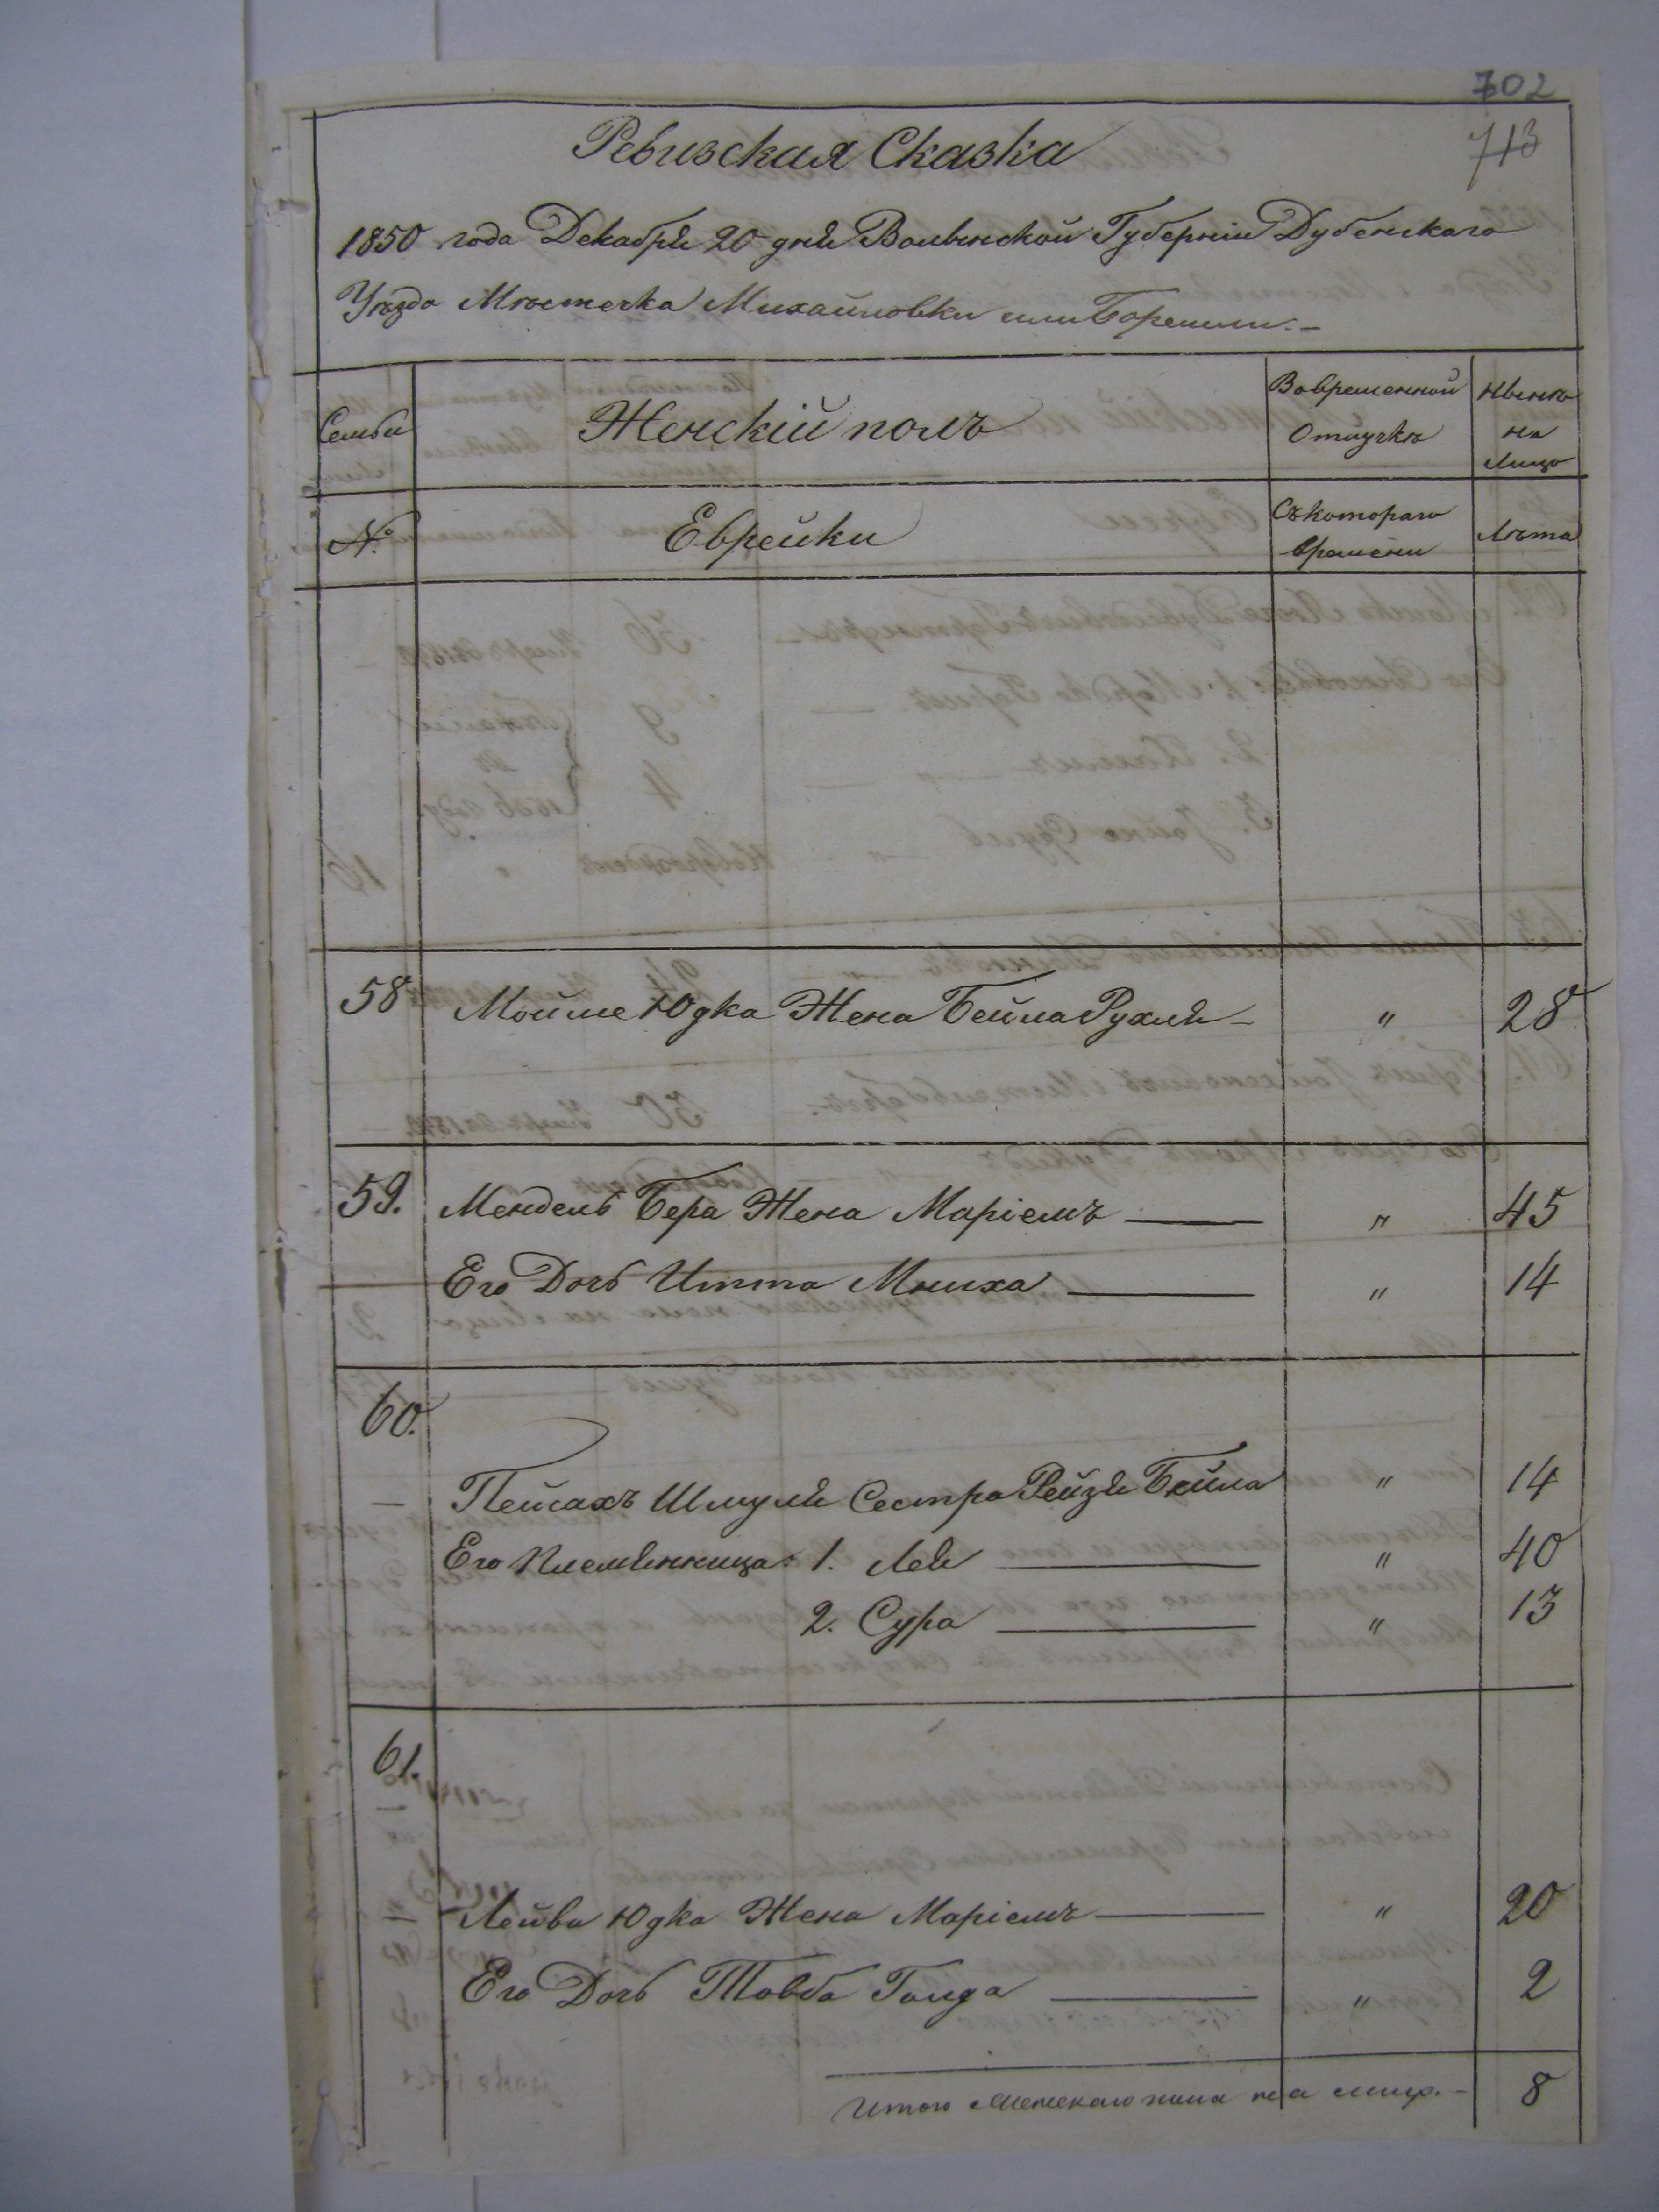 702
713
Ревизская Сказка
1850 года Декабря 20 дня Волынской Губерніи Дубенскаго
Уѣзда Мѣстечка Михайловки или Боремли. -
Семьи
Женскій полъ
Во временной Отлучкѣ
Нынѣ на Лицо
№
Еврейки
Съ котораго времени
Лѣта
58 Мойше Юдка Жена Бейла Рухля - " 28
59. Мендель Бера Жена Маріемъ — " 45
Его Дочь Итта Мниха — " 14
60.
— Пейсахъ Шмуля Сестра Рейзя Бейла " 14
Его Племянница: 1. Лея — " 40
2. Сура — " 13
61.
Лейви Юдка Жена Маріемъ — " 20
Его Дочь Товба Голда — " 2
Итого Женскаго пола на лицо. - 8